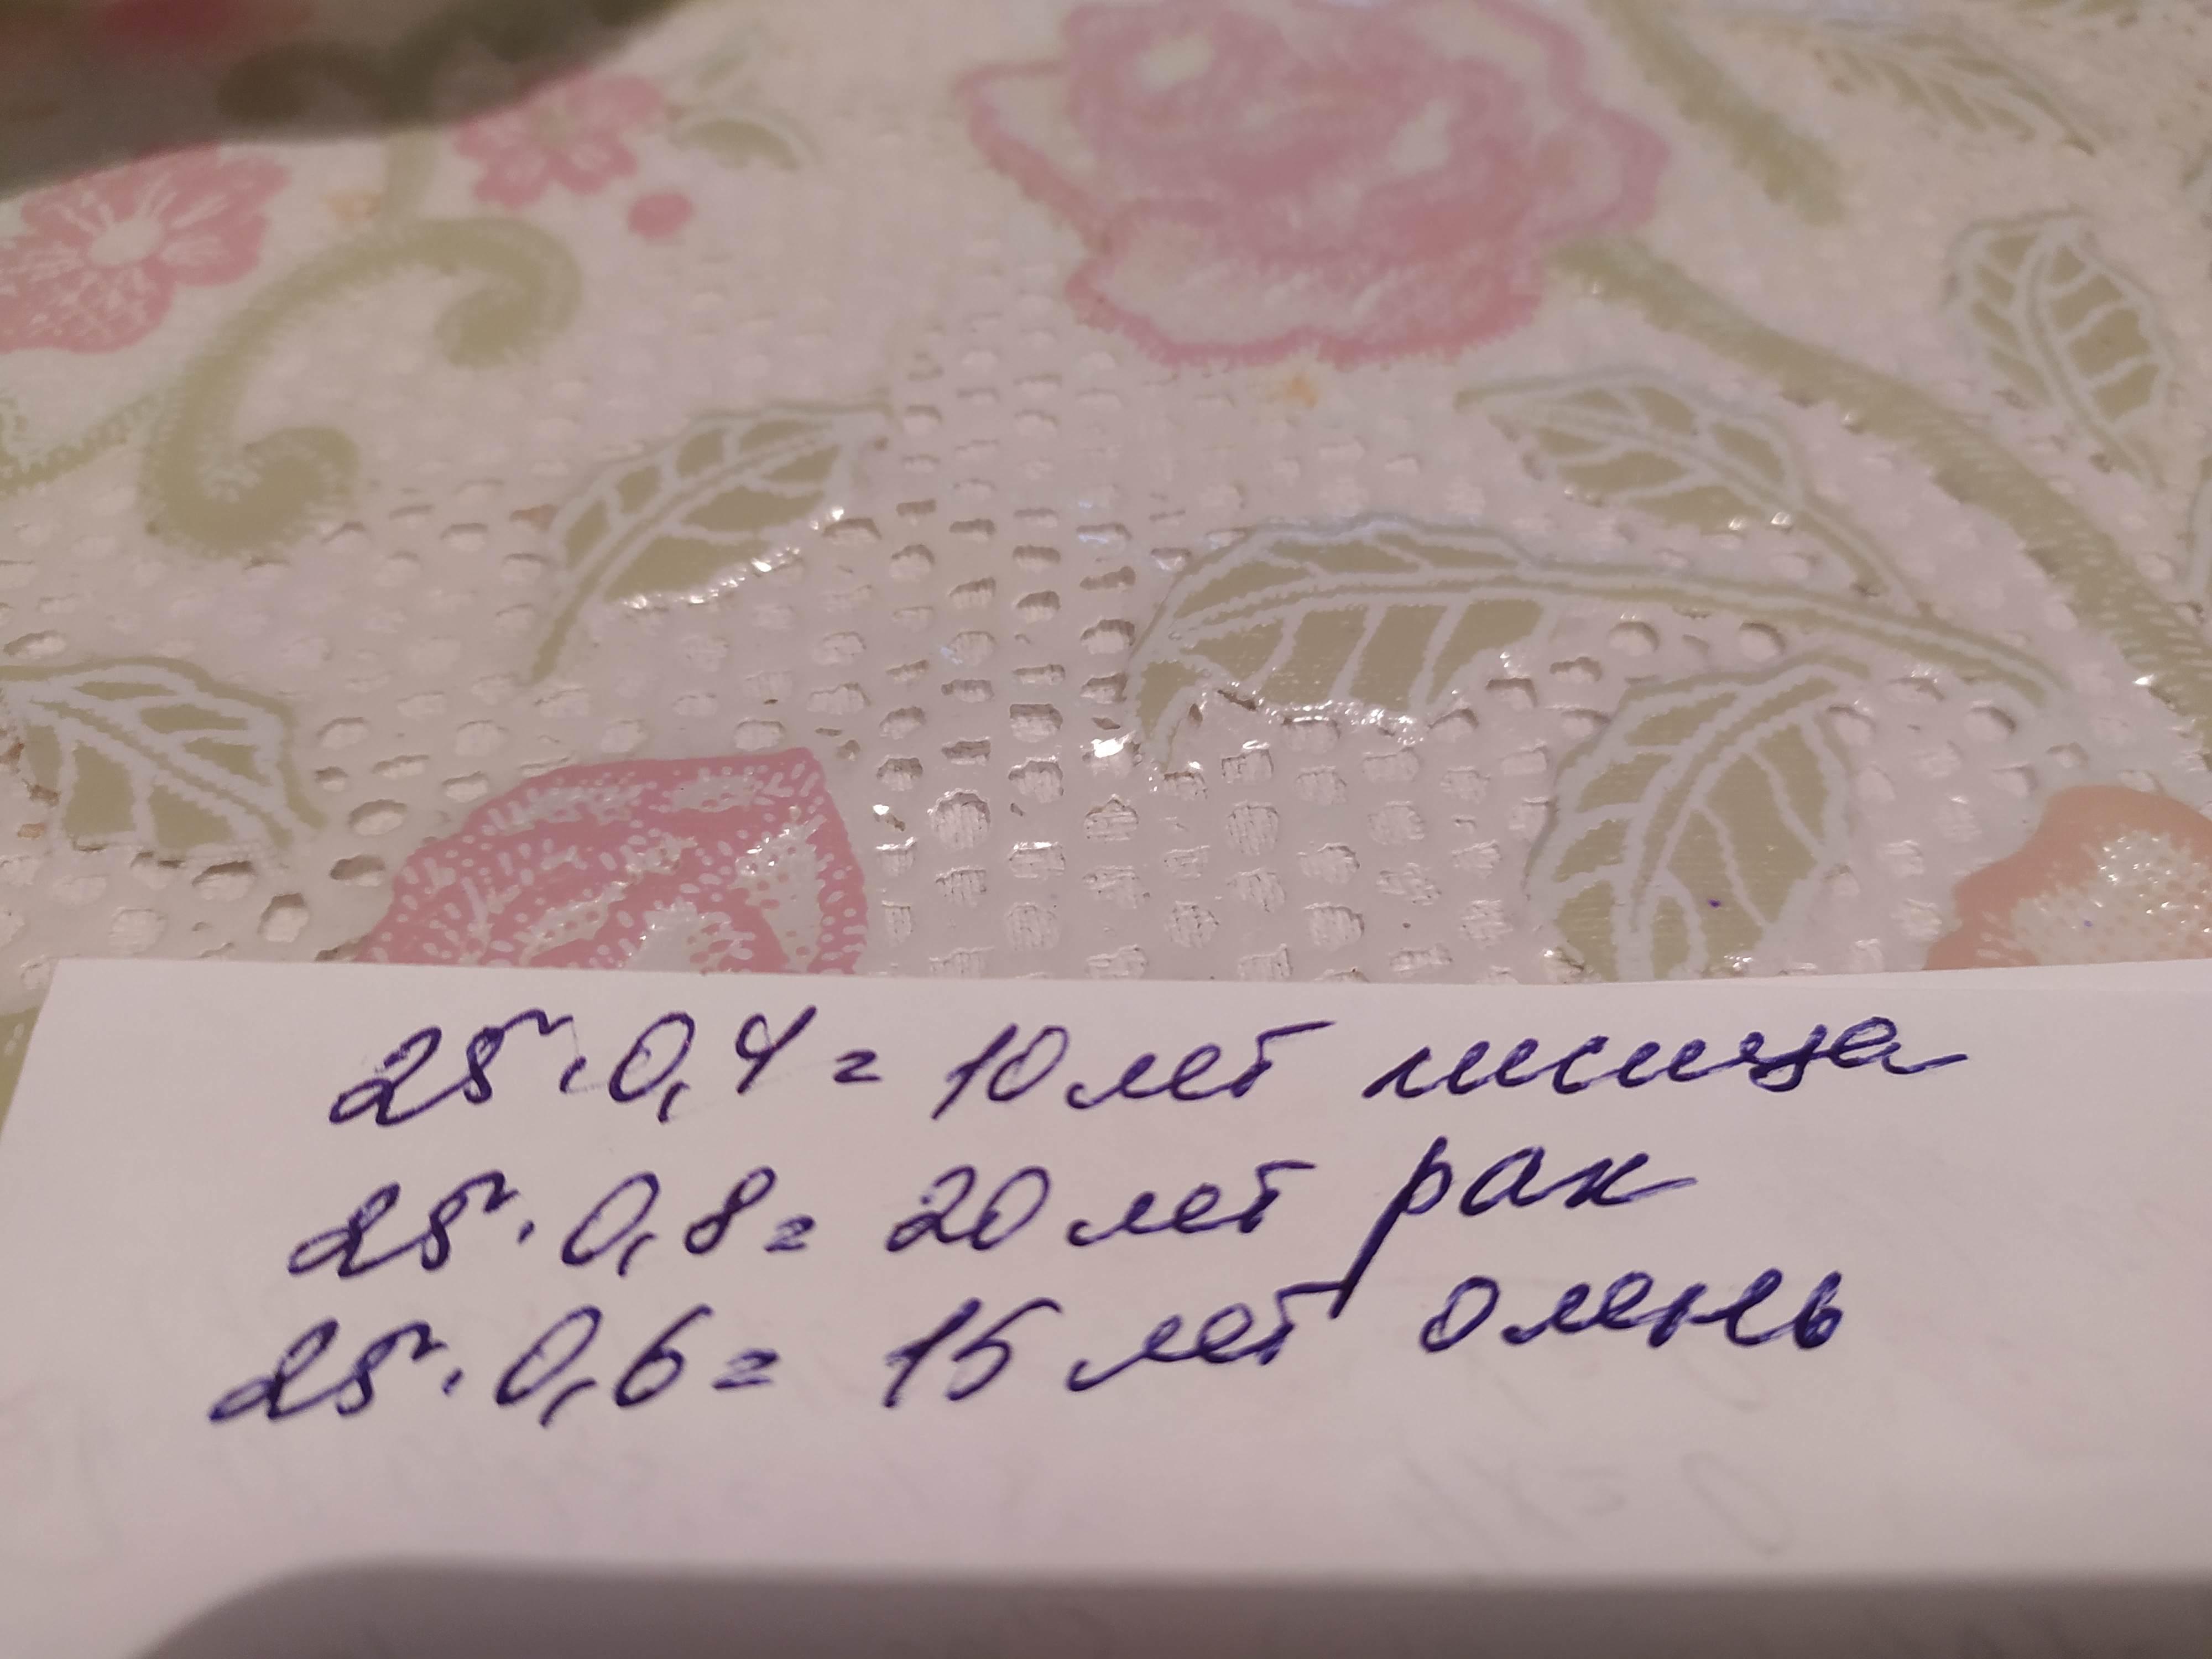 25 · 0,4 = 10 лет лисица
25 · 0,8 = 20 лет рак
25 · 0,6 = 15 лет олень